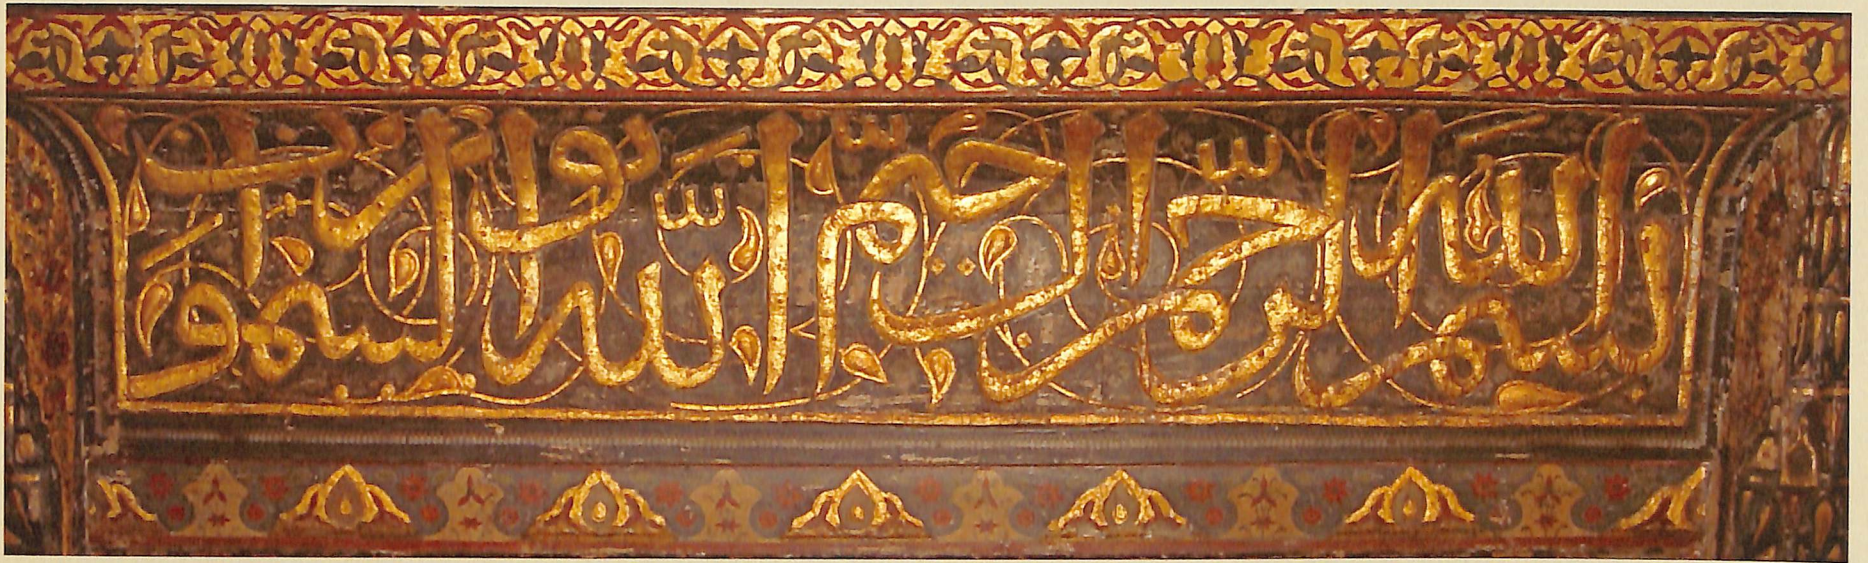 بسم الله الرحمن الرحيم الله نور السموات